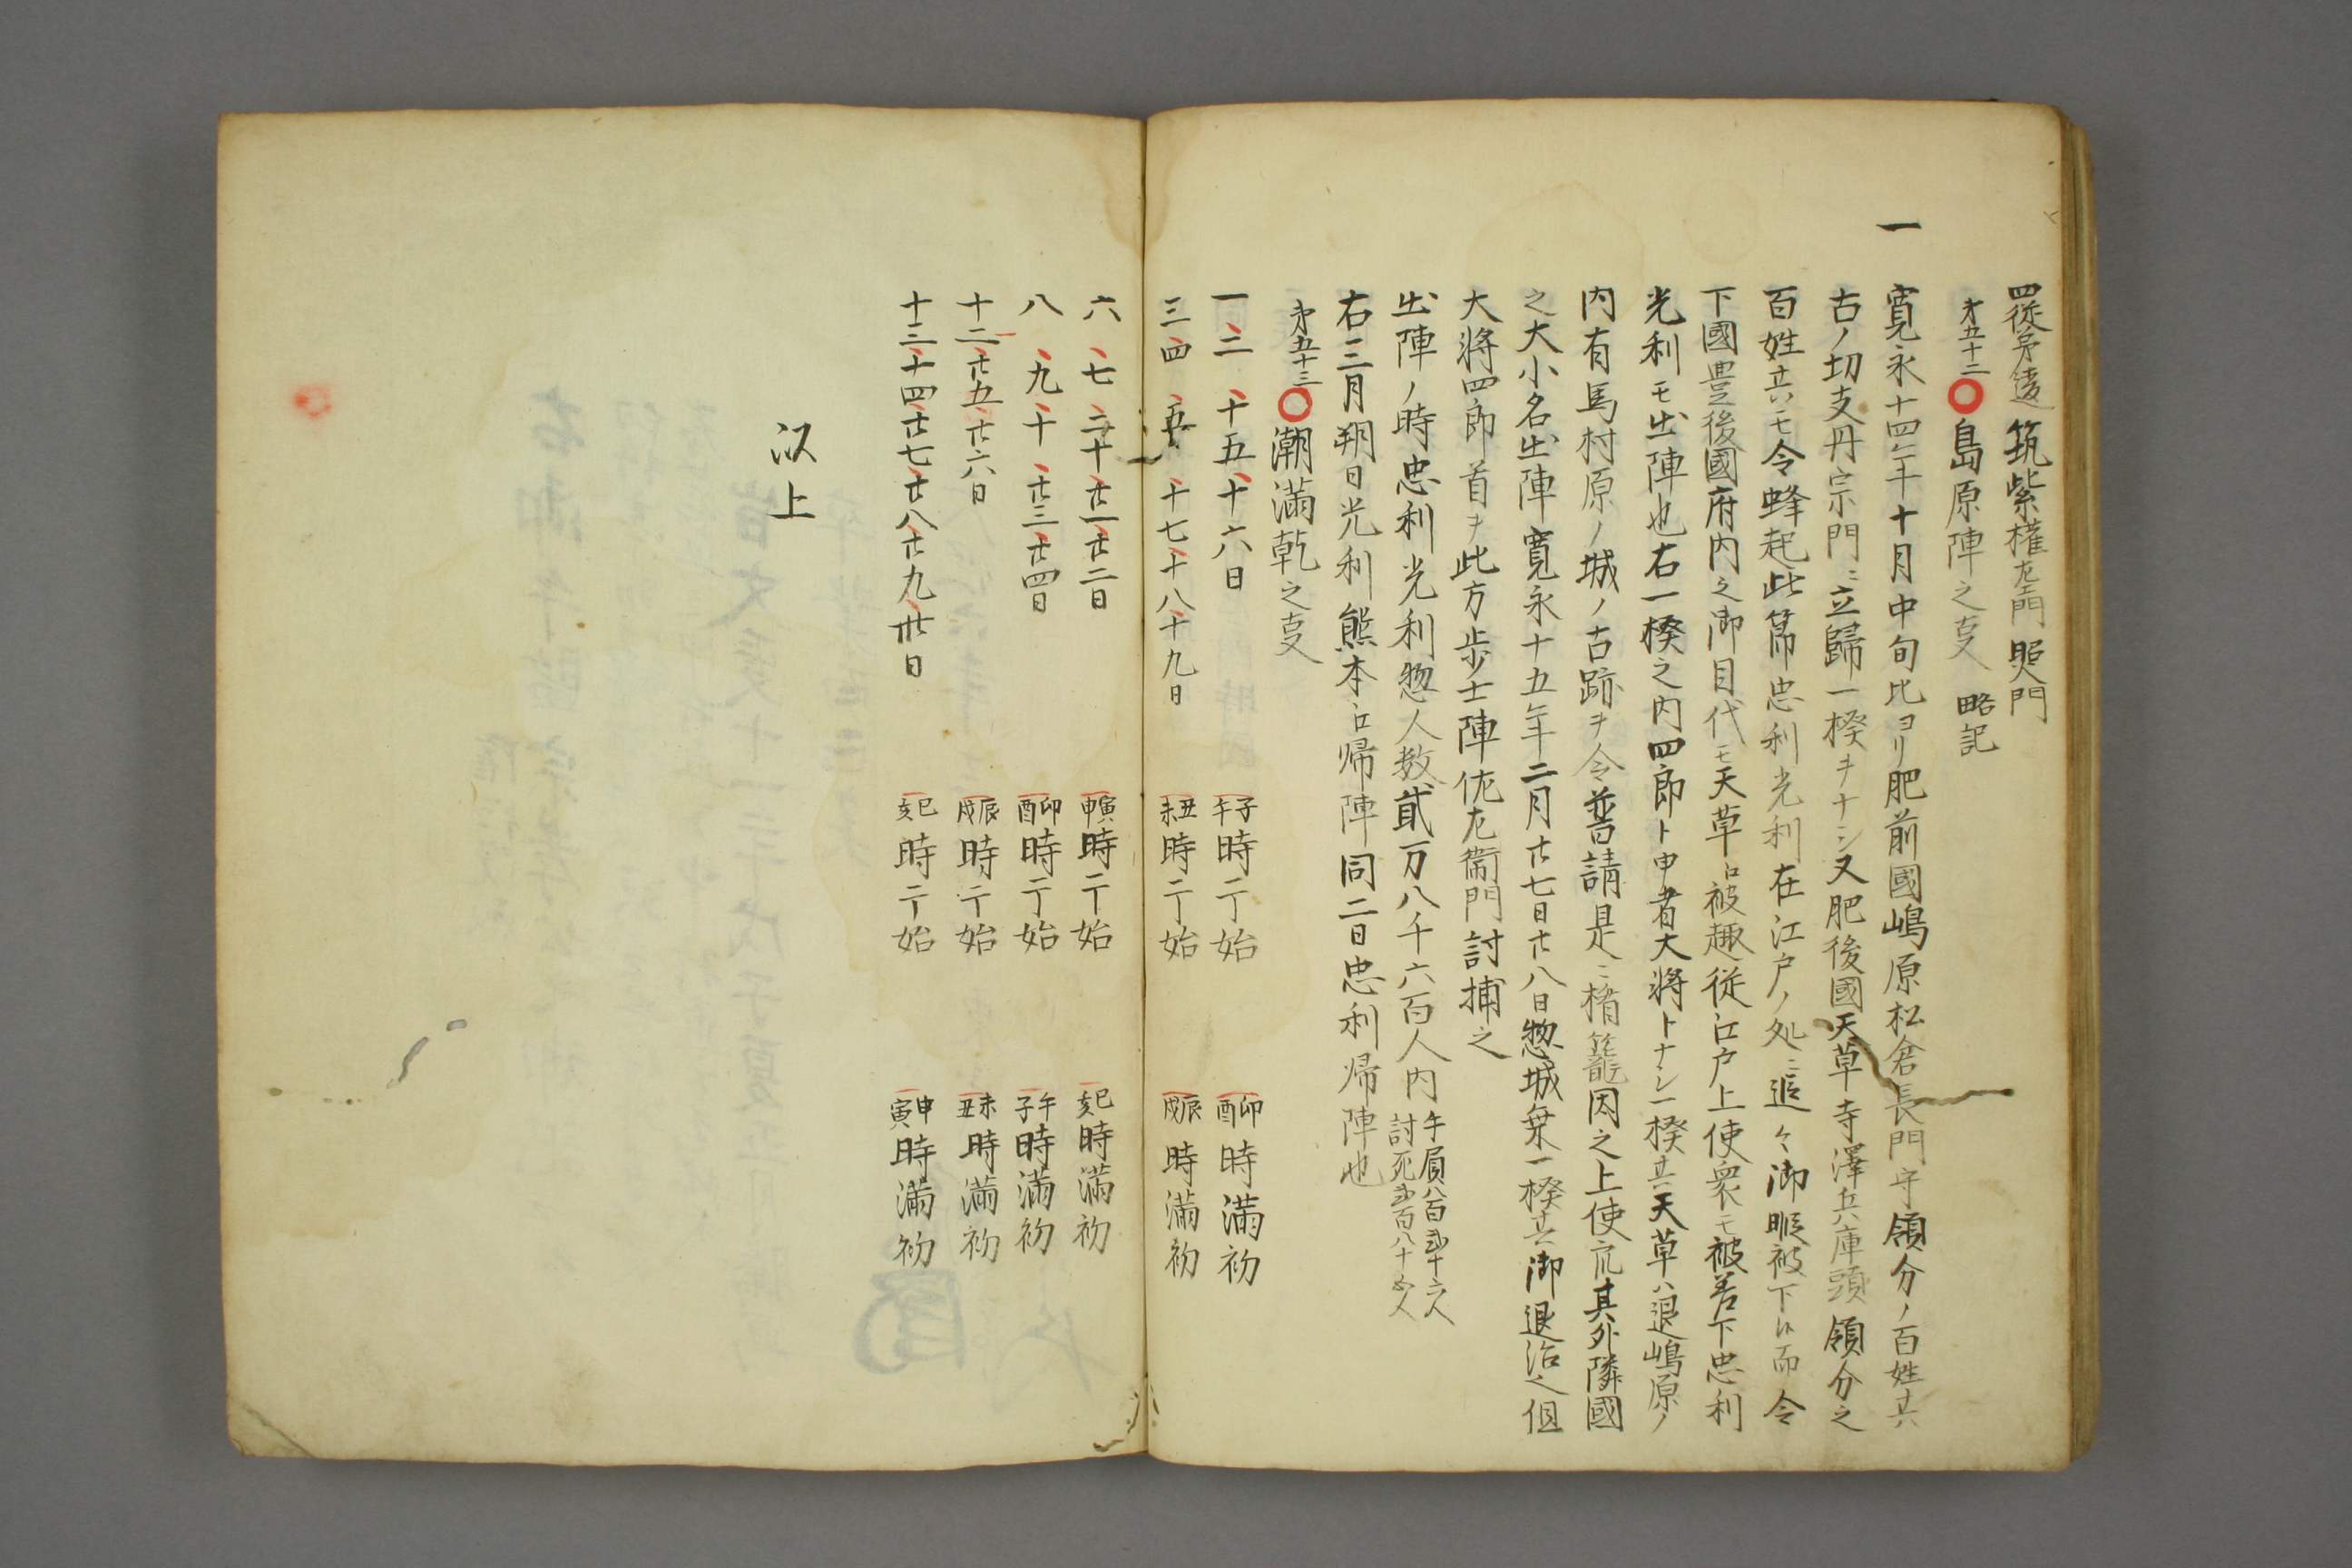 四従弟遠 筑紫権左衛門 照門
才五十二〇島原陣之叓 略記
一 寛永十四年十月中旬比ヨリ肥前國嶋原松倉長門守領分ノ百姓共
古ノ切支丹宗門ニ立歸一揆ヲナシ又肥後國天草寺澤兵庫頭領分之
百姓共モ令蜂起此節忠利光利在江戸ノ処ニ追々御暇被下候而令
下國豊後國府内之御目代モ天草江被趣従江戸上使衆モ被差下忠利
光利モ出陣也右一揆之内四郎ト申者大将トナシ一揆共天草ハ退嶋原ノ
内有馬村原ノ城ノ古跡ヲ令普請是ニ楯籠因之上使并其外隣國
之大小名出陣寛永十五年二月廿七日廿八日惣城乗一揆共御退治之但
大将四郎首ヲ此方歩士陣佐左衛門討捕之
出陣ノ時忠利光利惣人数貳万八千六百人内 手屓八百弐十六人 討死弐百八十五人
右三月朔日光利熊本江帰陣同二日忠利帰陣也
弟五十三〇潮満乾之叓
一、二、十五、十六日 子午時ニ干始 卯酉時満初
三、四、五、十七、十八、十九日 丑未時ニ干始 辰戌時満初
六、七、二十、廿一、廿二日 寅申時ニ干始 巳亥時満初
八、九、十、廿三、廿四日 卯酉時ニ干始 午子時満初
十二、廿五、廿六日 辰戌時ニ干始 未丑時満初
十三、十四、廿七、廿八、廿九、卅日 巳亥時ニ干始 申寅時満初
以上